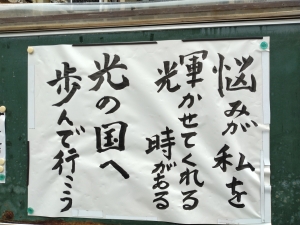 悩みが私を
輝かせてくれる
時がある
光の国へ
歩んで行こう